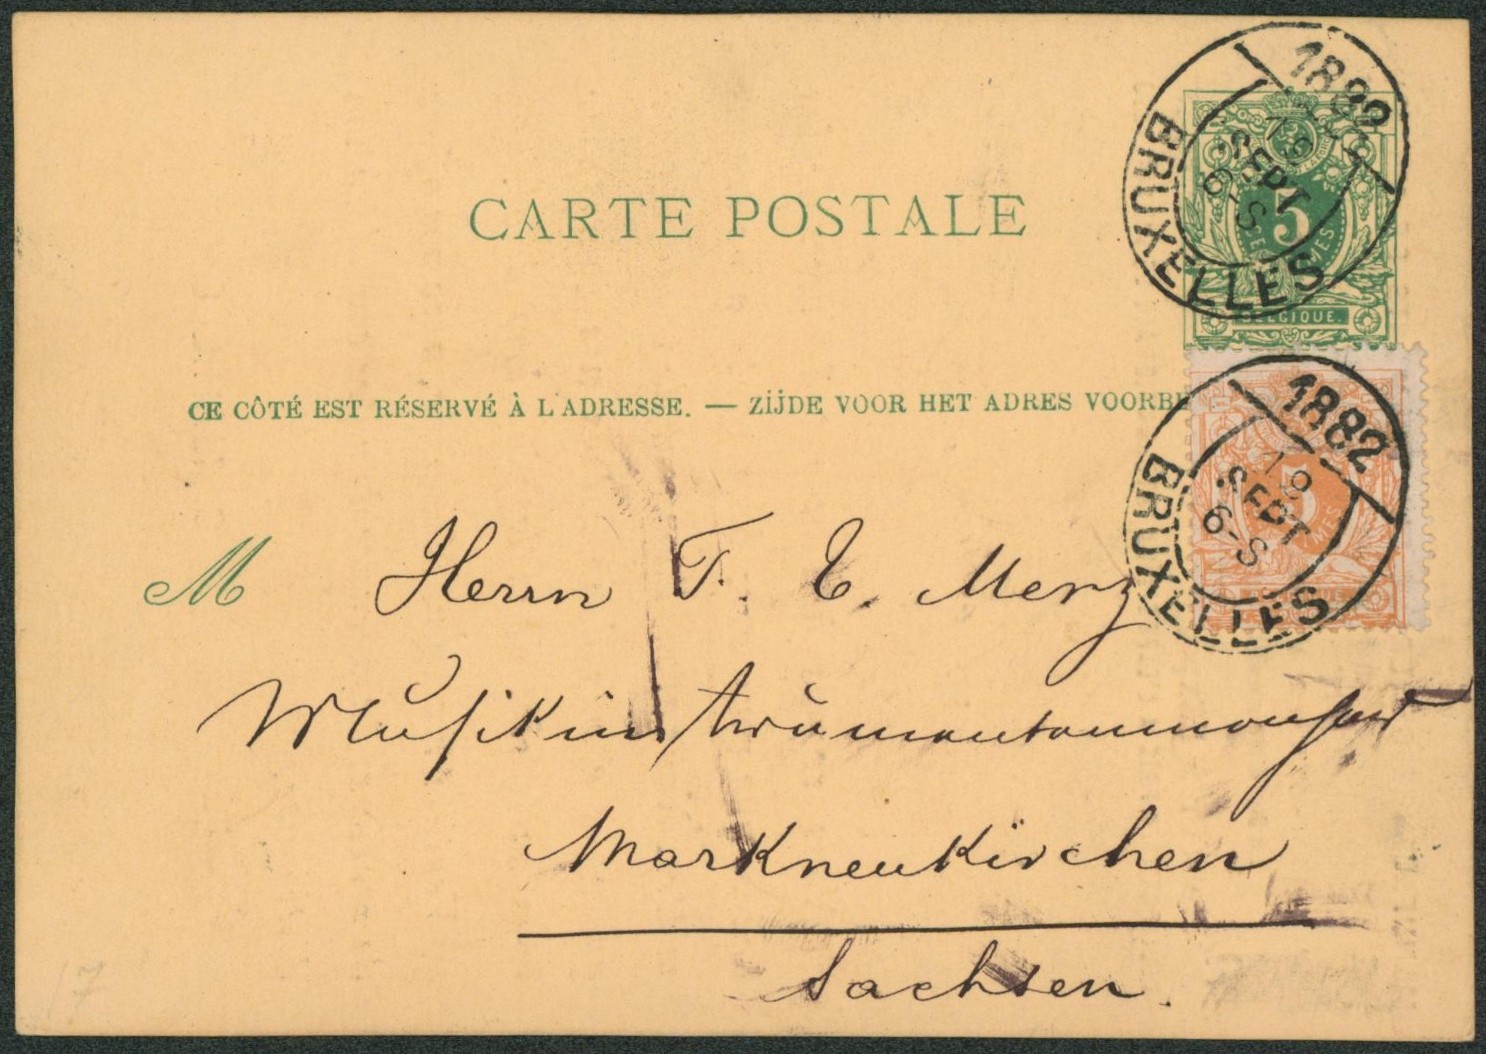 1882
18
SEPT
6-S
BRUXELLES
5
BELGIQUE.
CARTE POSTALE
CE CÔTÉ EST RÉSERVÉ À L'ADRESSE. — ZIJDE VOOR HET ADRES VOORBE
1882
18
SEPT
6-S
BRUXELLES
5
M Herrn F. E. Merz
Markneukirchen
Sachsen.
17